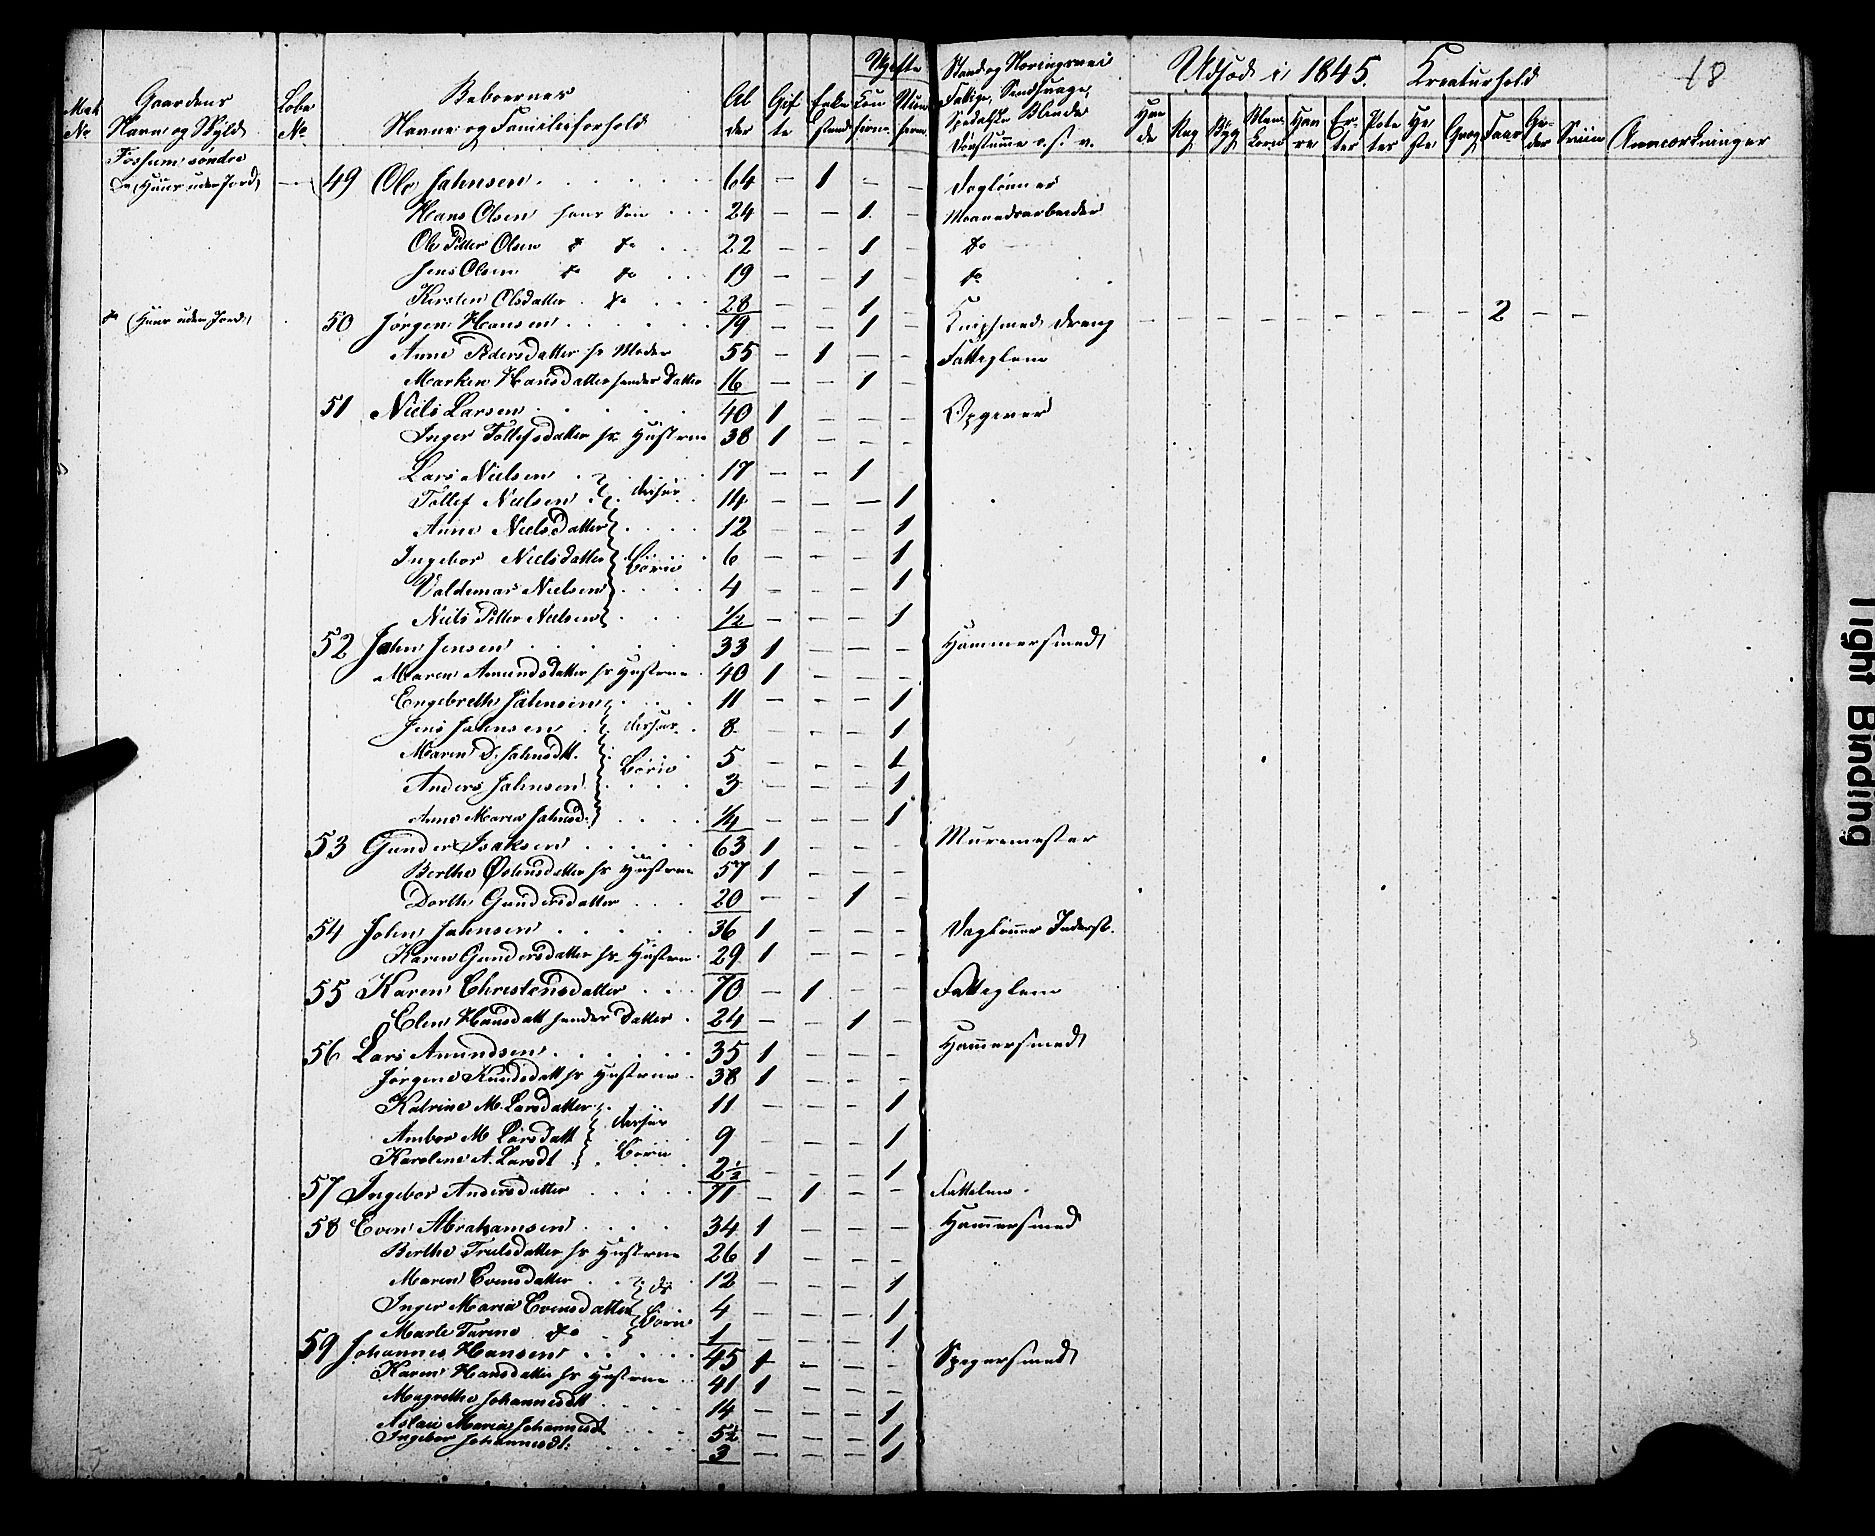 18
Mat. No.
Gaardens Navn og Skyld
Løbe No.
Beboernes Navne og Familieforhold
Alder
Gifte
Enkestand
Ugifte
Konfirm.
Ukonfirm.
Stand og Næringsvei
Fattige, Sindssvage, Spedalske Blinde Døvstumme o.s.v.
Udsæd i 1845.
Hvede
Rug
Byg
Havre
Erter
Poteter
Kreaturhold
Heste
Qvæg
Faar
Geder
Sviin
Anmærkninger
Fossum søndre
do (Huus uden Jord) — 49 Ole Jahnsen 64 — 1 — — Dagløner
Hans Olsen hans Søn 24 — — 1 — Maanedsarbeider
Ole Petter Olsen do do 22 — — 1 — do
Jens Olsen do do 19 — — 1 — do
Kirsten Olsdatter do 28 — — 1 —
do (Huus uden Jord) 50 Jørgen Hansen 19 — — 1 — Knipsmed dreng — — — — — — — — — 2 — —
Anne Pedersdatter hs Moder 55 — 1 — — Fattiglem
Marken Hansdatter hendes Datter 16 — — 1 —
51 Niels Larsen 40 1 — — — Opgever
Inger Tollefsdatter hs Hustrue 38 1 — — —
Lars Nielsen 17 — — 1
Tollef Nielsen deres 14 — — — 1
Anne Nielsdatter 12 — — — 1
Ingebor Nielsdatter Børn 6 — — — 1
Valdemar Nielsen 4 — — — 1
Niels Petter Nielsen 1/2 — — — 1
52 Jahn Jensen 33 1 — — — Hammersmed
Maren Amundsdatter hs Hustrue 40 1 — — —
Engebreth Jahnsen 11 — — — 1
Jens Jahnsen deres 8 — — — 1
Maren D. Jahnsdt. 5 — — — 1
Anders Jahnsen Børn 3 — — — 1
Anne Maren Jahnsd. 1/4 — — — 1
53 Gunder Isaksen 63 1 — — — Muremester
Berthe Østensdatter hs Hustrue 57 1 — — —
Dorthe Gundersdatter 20 — — 1 —
54 John Jahnsen 36 1 — — — Dagløner Inderst.
Karen Gundersdatter hs Hustrue 29 1 — — —
55 Karen Christensdatter 70 — 1 — — Fattiglem
Elen Hansdatt hendes Datter 24 — — 1 —
56 Lars Amundsen 35 1 — — — Hammersmed
Jørgene Knudsdatt hs Hustrue 38 1 — — —
Katrine M. Larsdatter 11 — — — 1
Ambor M Larsdatt deres 9 — — — 1
Karoline A. Larsdt Børn 2 1/2 — — — 1
57 Ingebor Andersdatter 71 — 1 — — Fattelem
58 Even Abrahamsen 34 1 — — — Hammersmed
Berthe Trulsdatter hs Hustrue 26 1 — — —
Maren Evensdatter ds 12 — — — 1
Inger Maria Evensdatter Børn 4 — — — 1
Marte Turine do 1 — — — 1
59 Johannes Hansen 45 1 — — — Spigersmed
Karen Hansdatter hs Hustrue 41 1 — — —
Magrethe Johannesdt 14 — — — 1
Aslau Maria Johannesdt 5 1/2 — — — 1
Ingebor Johannesdt. 3 — — — 1
Tight Binding